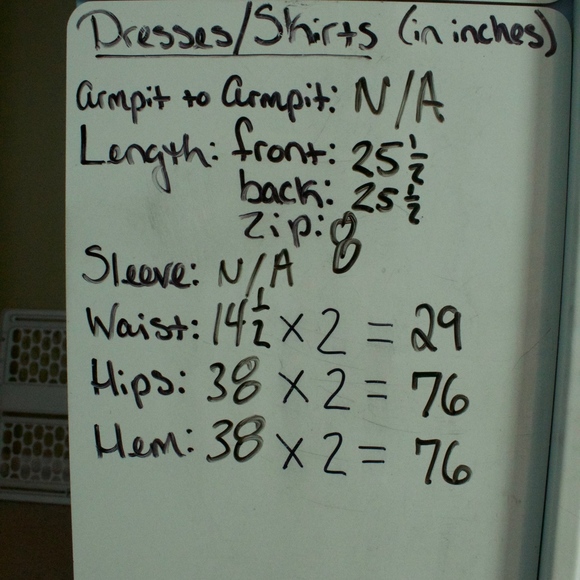 Dresses/Skirts (in inches)
Armpit to Armpit: N/A
Length: front: 25 1/2
back: 25 1/2
Zip: 8
Sleeve: N/A
Waist: 14 1/2 x 2 = 29
Hips: 38 x 2 = 76
Hem: 38 x 2 = 76